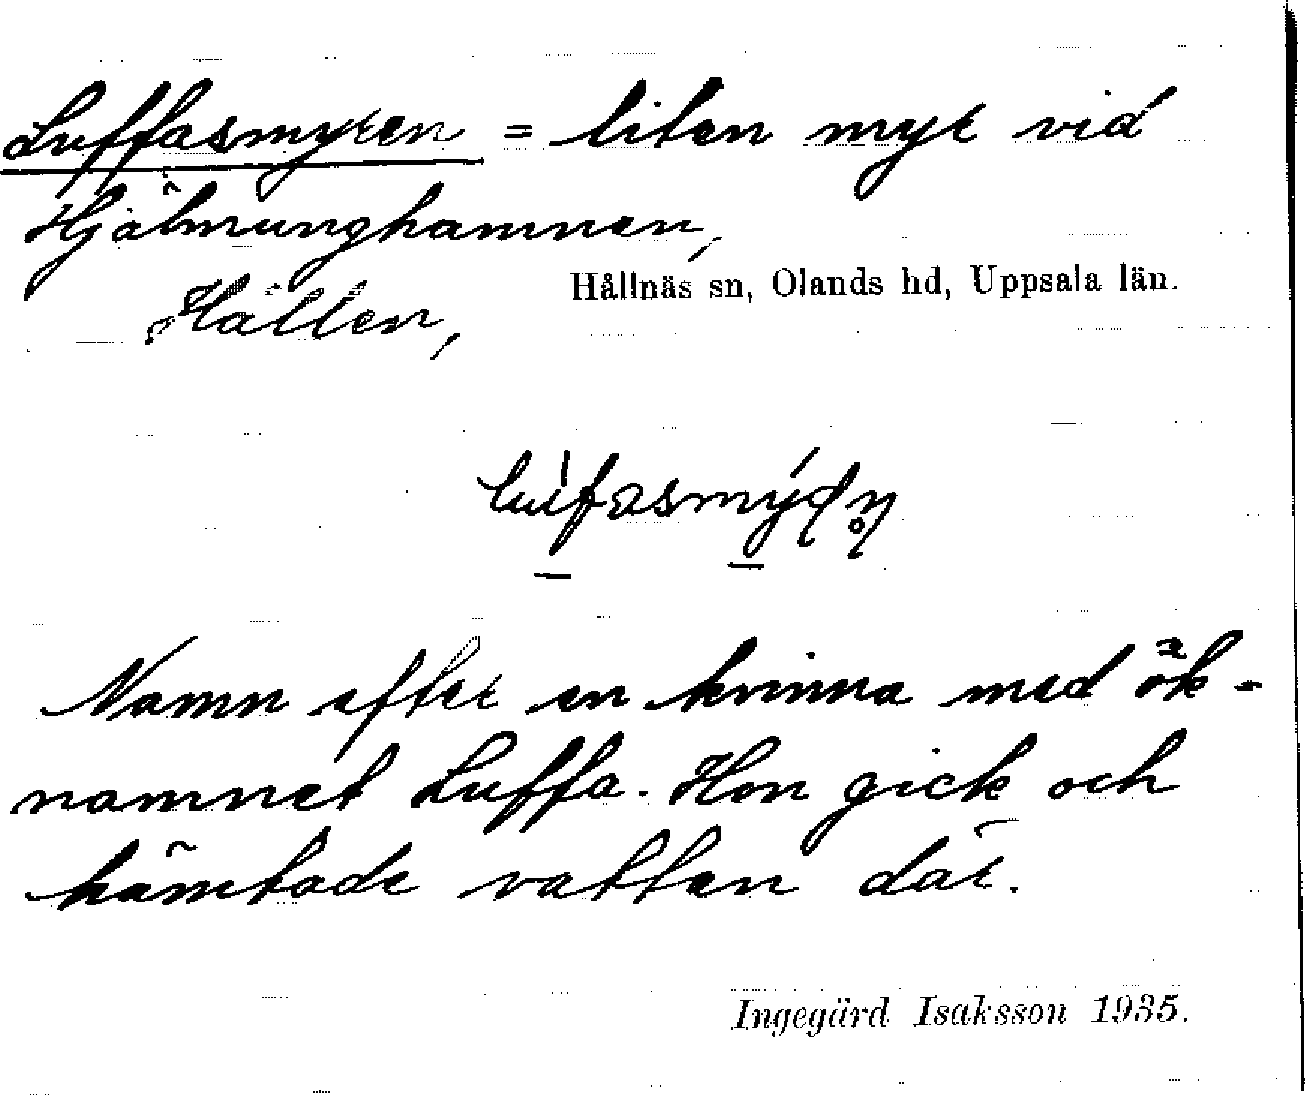 Luffasmyren = liten myr vid
Hjälmunghamnen,
Hållnäs sn, Olands hd, Uppsala län.
Hällen,
Namn efter en kvinna med ök-
namnet Luffa. Hon gick och
hämtade vatten där.
Ingegärd Isaksson 1935.